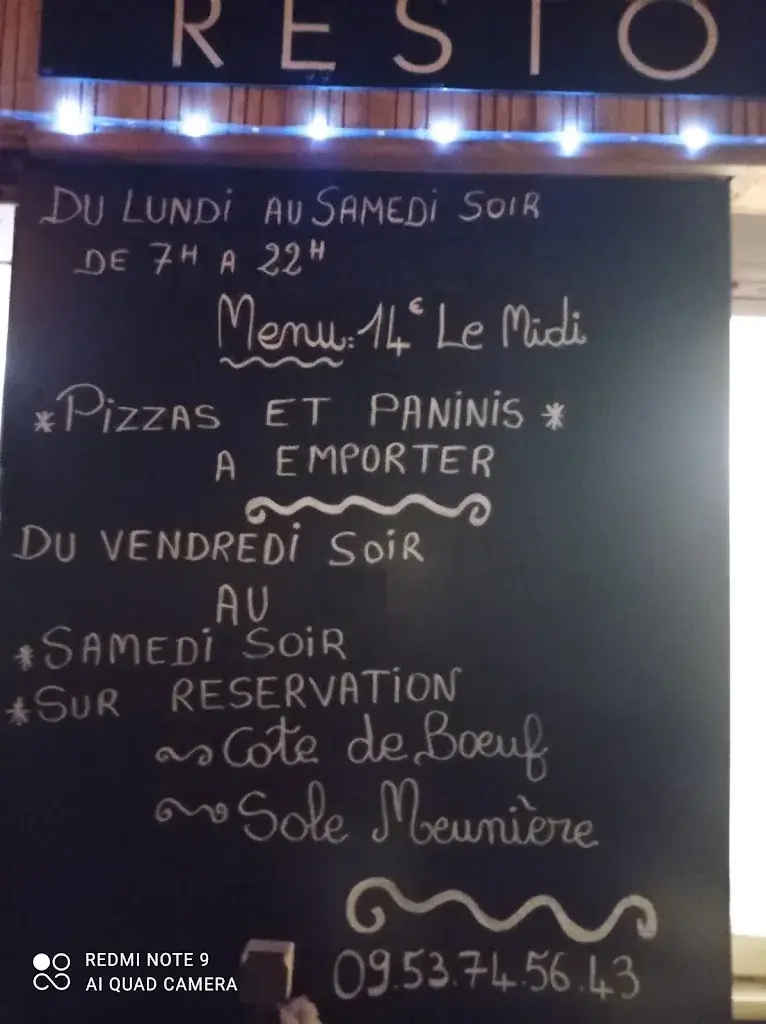 RESTO
DU LUNDI AU SAMEDI SOIR
DE 7H A 22H
Menu: 14€ Le Midi
*PIZZAS ET PANINIS*
A EMPORTER
DU VENDREDI SOIR
AU
*SAMEDI SOIR
*SUR RESERVATION
Cote de Bœuf
Sole Meunière
09.53.74.56.43
REDMI NOTE 9
AI QUAD CAMERA